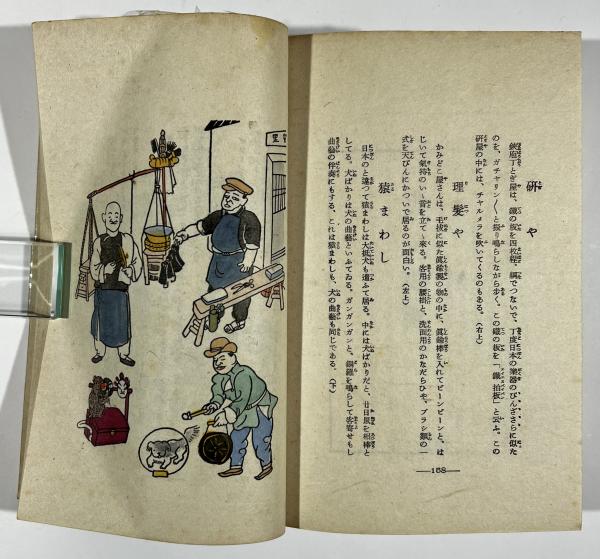 研や
鋏庖丁とぎ屋は、鐵の板を四枚程、綱でつないで、丁度日本の樂器のびんざさらに似た
のを、ガチャリン〳〵と振り鳴らしながら歩く。この鐵の板を「鐵拍板」と云ふ。この
研屋の中には、チャルメラを吹いてくるのもある。(右上)
理髪や
かみどこ屋さんは、毛拔に似た眞鍮製の物の中に、眞鍮棒を入れてビーンビーンと、は
じいて氣持のいゝ音を立て〻來る。客用の腰掛と、洗面用のかなだらひや、ブラシ類の一
式を天びんにかついで居るのが面白い。(左上)
猿まわし
日本のと違つて猿まわしは大抵犬も連ふて居る。中には犬ばかりだと、廿日鼠を相棒と
してる。犬ばかりは犬の曲藝といふてゐる。ガンガンガンと、銅鑼を鳴らして客寄せもし
曲藝の伴奏にもする、これは猿まわしも、犬の曲藝も同じである。(下)
—158—